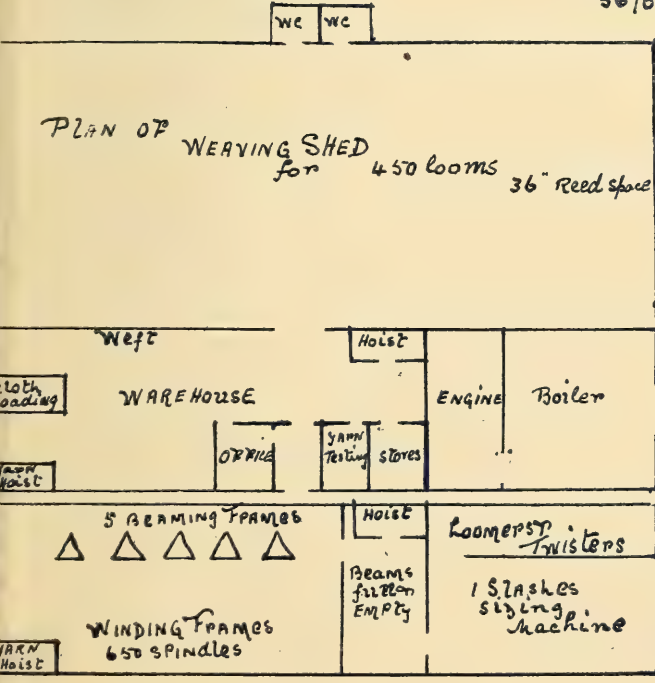 WC WC
PLAN OF WEAVING SHED
for 450 looms 36" Reed space
Weft
Hoist
WAREHOUSE
ENGINE
Boiler
OFFICE
YARN
Testing
Stores
Hoist
5 BEAMING FRAMES
Hoist
Loomers &
Twisters
Beams
full or
EMPTY
1 Slashes
Sizing
Machine
WINDING FRAMES
650 SPINDLES
YARN
Hoist